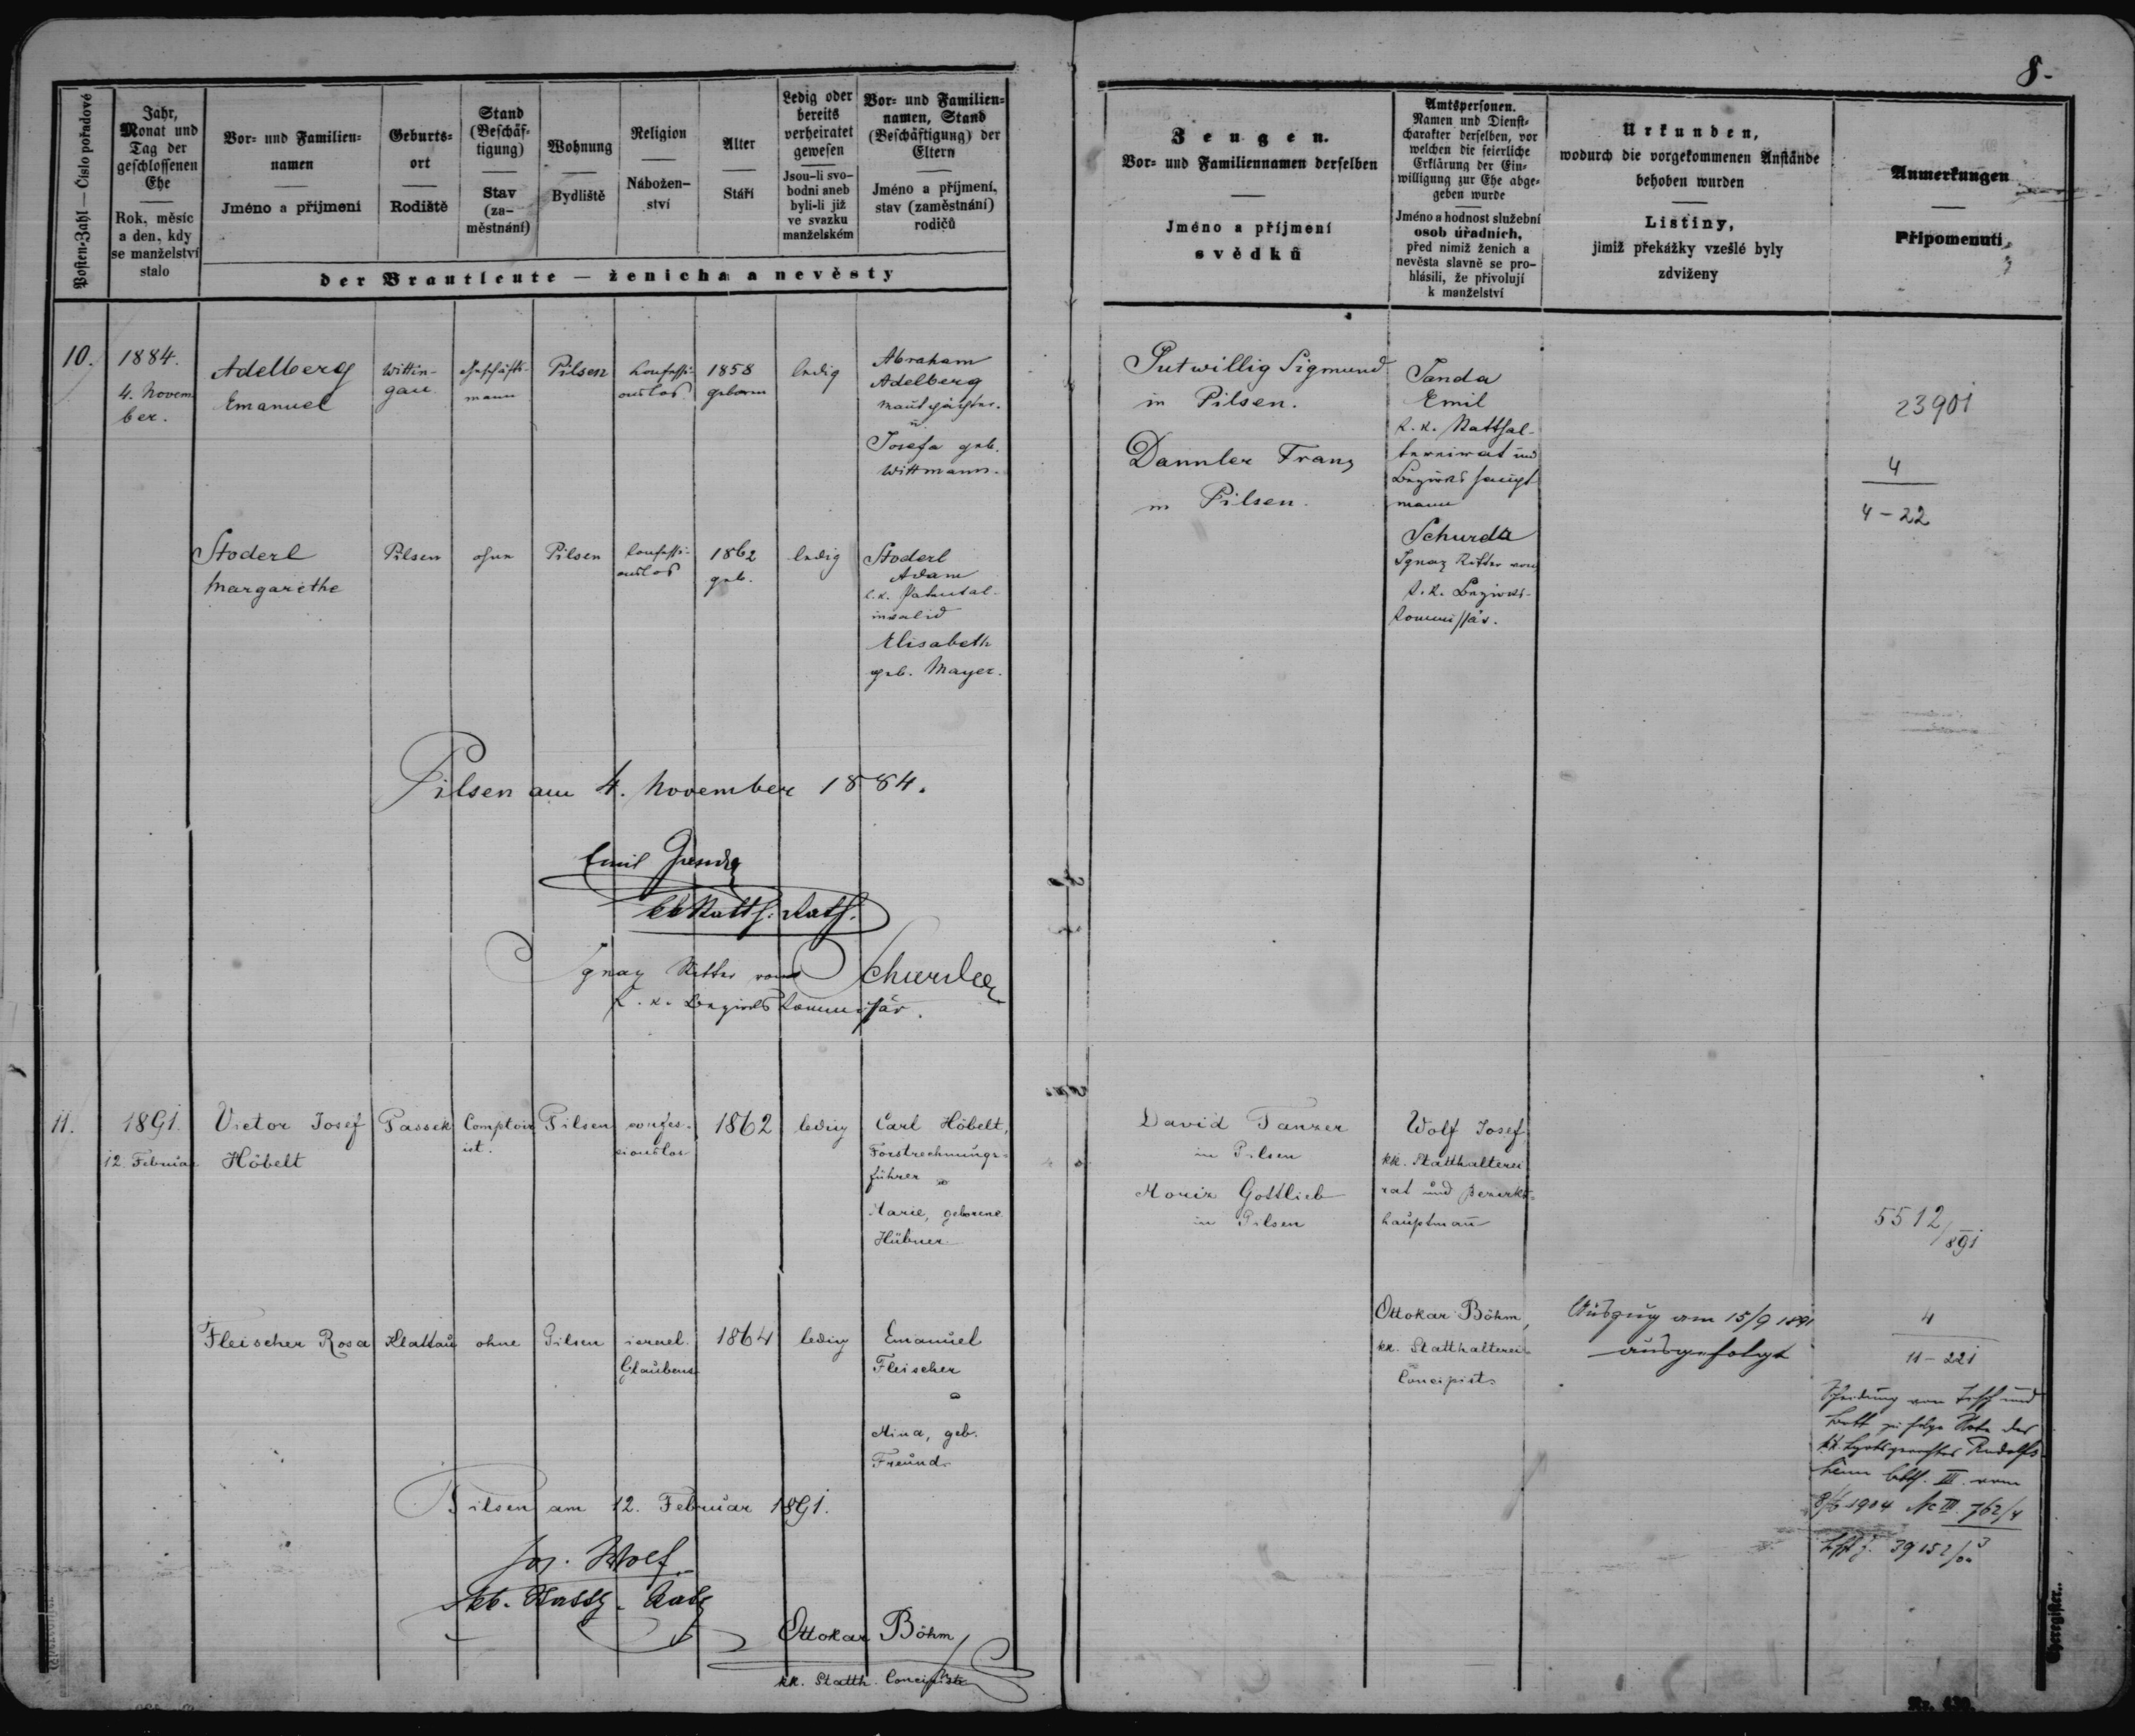 8.
Posten-Zahl — Číslo pořadové
Jahr,
Monat und
Tag der
geschlossenen
Ehe
Rok, měsíc
a den, kdy
se manželství
stalo
Vor- und Familien-
namen
Jméno a příjmení
Geburts-
ort
Rodiště
Stand
(Beschäf-
tigung)
Stav
(za-
městnání)
Wohnung
Bydliště
Religion
Nábožen-
ství
Alter
Stáří
Ledig oder
bereits
verheiratet
gewesen
Jsou-li svo-
bodni aneb
byli-li již
ve svazku
manželském
Vor- und Familien-
namen, Stand
(Beschäftigung) der
Eltern
Jméno a příjmení,
stav (zaměstnání)
rodičů
der Brautleute — ženicha a nevěsty
Zeugen.
Vor- und Familiennamen derselben
Jméno a příjmení
svědků
Amtspersonen.
Namen und Dienst-
charakter derselben, vor
welchen die feierliche
Erklärung der Ein-
willigung zur Ehe abge-
geben wurde
Jméno a hodnost služební
osob úřadních,
před nimiž ženich a
nevěsta slavně se pro-
hlásili, že přivolují
k manželství
Urkunden,
wodurch die vorgekommenen Anstände
behoben wurden
Listiny,
jimiž překážky vzešlé byly
zdviženy
Anmerkungen
Připomenutí
10.
1884.
4. Novem
ber.
Adelberg
Emanuel
Wittin-
gau
Geschäfts-
mann
Pilsen
konfessi-
onslos
1858
geboren
ledig
Abraham
Adelberg
Mautpächter.
u.
Josefa geb.
Wittmann.
Gutwillig Sigmund
in Pilsen.
Dannler Franz
in Pilsen.
Janda
Emil
k. k. Statthal-
tereirat und
Bezirkshaupt
mann
Schurda
Ignaz Ritter von
k. k. Bezirks-
kommissär.
23901
4
4 - 22
Stoderl
Margarethe
Pilsen
ohne
Pilsen
konfessi-
onslos
1862
geb.
ledig
Stoderl
Adam
k. k. Patental-
invalid
Elisabeth
geb. Mayer.
Pilsen am 4. November 1884.
Emil Janda
kk Statth. Rath.
Ignaz Ritter von Schurda
k. k. Bezirkskommissär.
11.
1891.
12. Februar
Victor Josef
Höbelt
Passek
Comptoir
ist.
Pilsen
confes-
sionslos
1862
ledig
Carl Höbelt,
Forstrechnungs-
führer
Marie, geborene
Hübner
David Tanzer
in Pilsen
Moriz Gottlieb
in Pilsen
Wolf Josef
kk. Statthalterei
rat und Bezirks-
hauptmann
5512/891
Fleischer Rosa
Klattau
ohne
Pilsen
israel.
Glaubens
1864
ledig
Emanuel
Fleischer
Mina, geb.
Freund
Ottokar Böhm,
kk. Statthalterei
Concipist
Auszug am 15/9 1891
ausgefolgt
4
11 - 221
Scheidung von Tisch und
Bett zu folge Note des
kk. Bezirksgerichtes Rudolfs-
heim Abth. III. vom
1904 Nc III. 762/4
39152
Pilsen am 12. Februar 1891.
Jos. Wolf
kk. Statth. Rath
Ottokar Böhm
kk. Statth. Concipist
Eheregister.